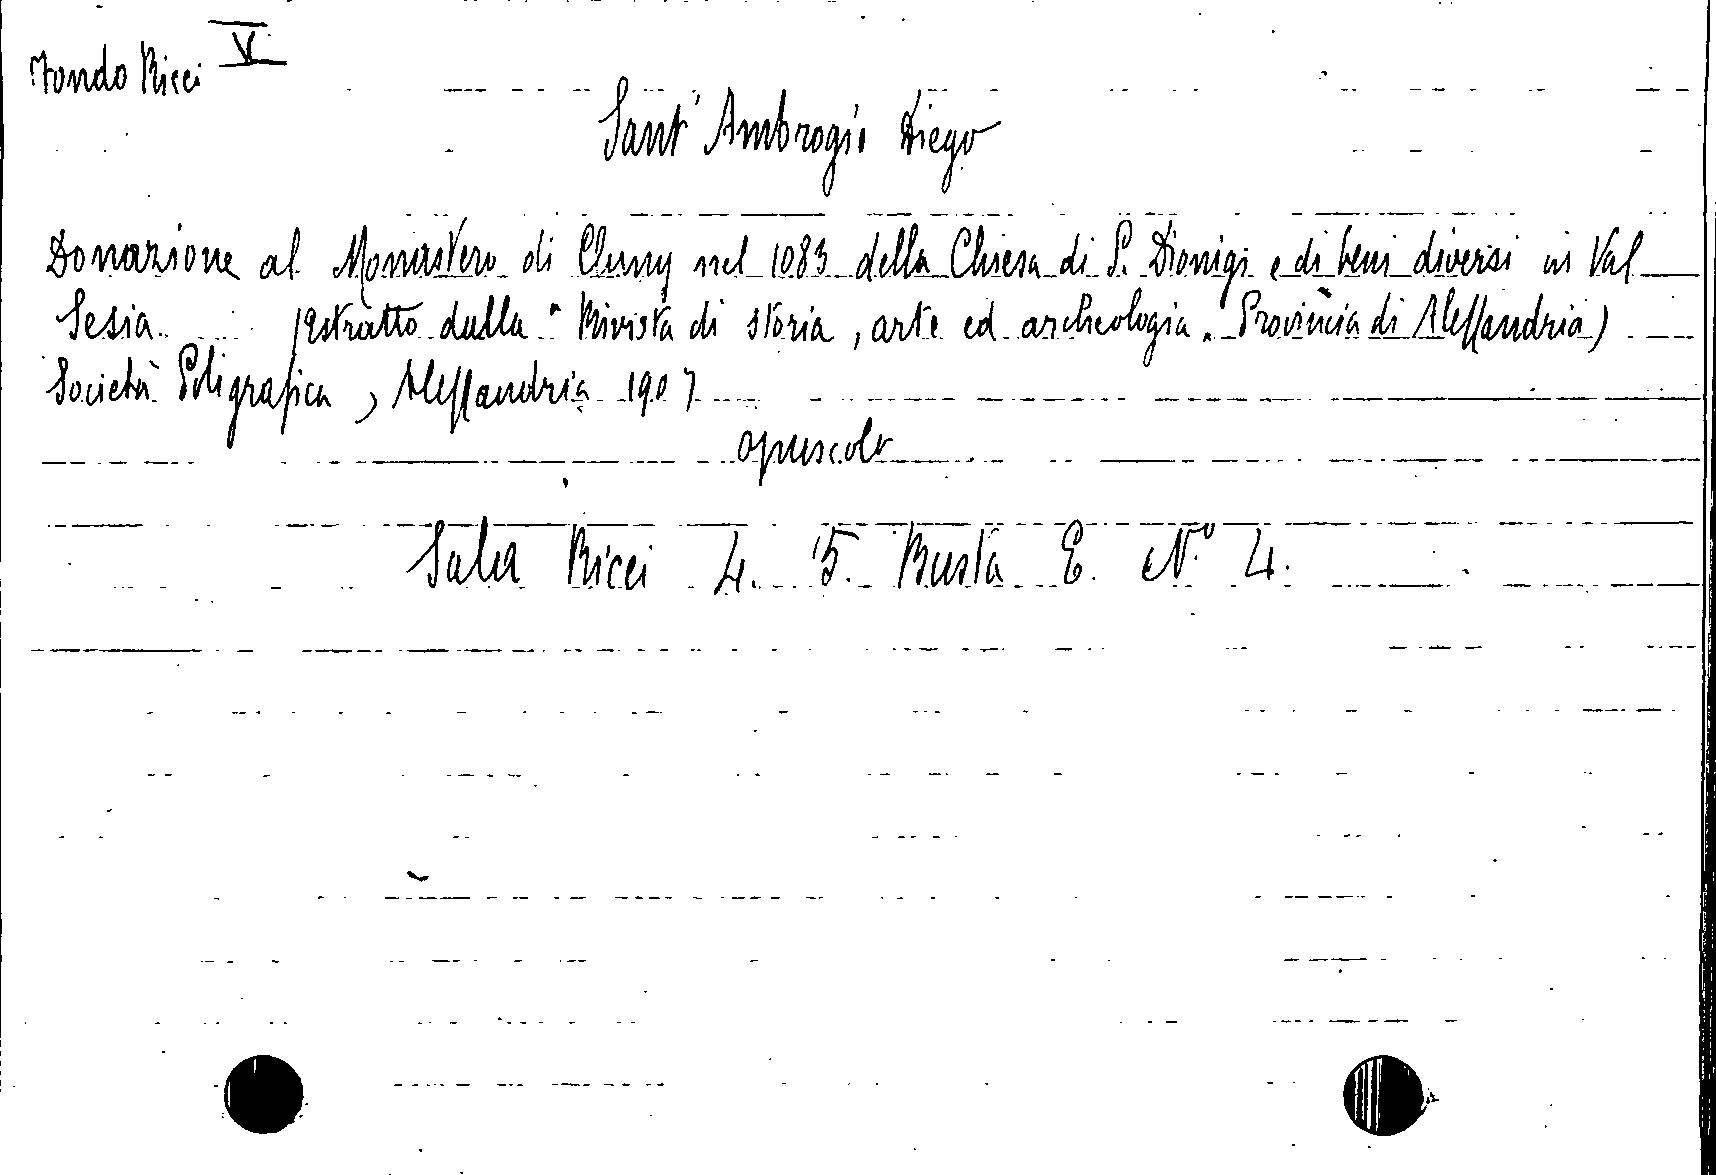 Fondo Ricci V
Sant'Ambrogio Diego
Donazione al Monastero di Cluny nel 1083 della Chiesa di S. Dionigi e di beni diversi in Val
Sesia. (Estratto dalla "Rivista di storia, arte ed archeologia. Provincia di Alessandria)
Società Poligrafica, Alessandria 1907
opuscolo
Sala Ricci 4. 5. Busta E. N.° 4.